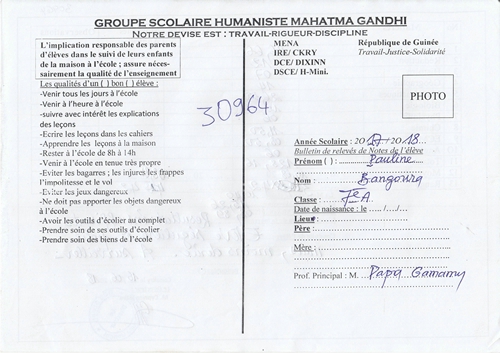 GROUPE SCOLAIRE HUMANISTE MAHATMA GANDHI
NOTRE DEVISE EST : TRAVAIL-RIGUEUR-DISCIPLINE
L'implication responsable des parents
d'élèves dans le suivi de leurs enfants
de la maison à l'école ; assure néces-
sairement la qualité de l'enseignement
Les qualités d'un ( ) bon ( ) élève :
-Venir tous les jours à l'école
-Venir à l'heure à l'école
-suivre avec intérêt les explications
des leçons
-Ecrire les leçons dans les cahiers
-Apprendre les leçons à la maison
- Rester à l'école de 8h à 14h
- Venir à l'école en tenue très propre
- Eviter les bagarres ; les injures les frappes
l'impolitesse et le vol
-Eviter les jeux dangereux
- Ne doit pas apporter les objets dangereux
à l'école
-Avoir les outils d'écolier au complet
-Prendre soin de ses outils d'écolier
-Prendre soin des biens de l'école
30964
MENA
IRE/ CKRY
DCE/ DIXINN
DSCE/ H-Mini.
République de Guinée
Travail-Justice-Solidarité
PHOTO
Année Scolaire : 2017/2018
Bulletin de relevés de Notes de l'élève
Prénom ( ) : Pauline
Nom : Bangoura
Classe : 7e A
Date de naissance : le ..... /..../....
Lieu :
Père :
Mère :
Prof. Principal : M. Papa Gamamy